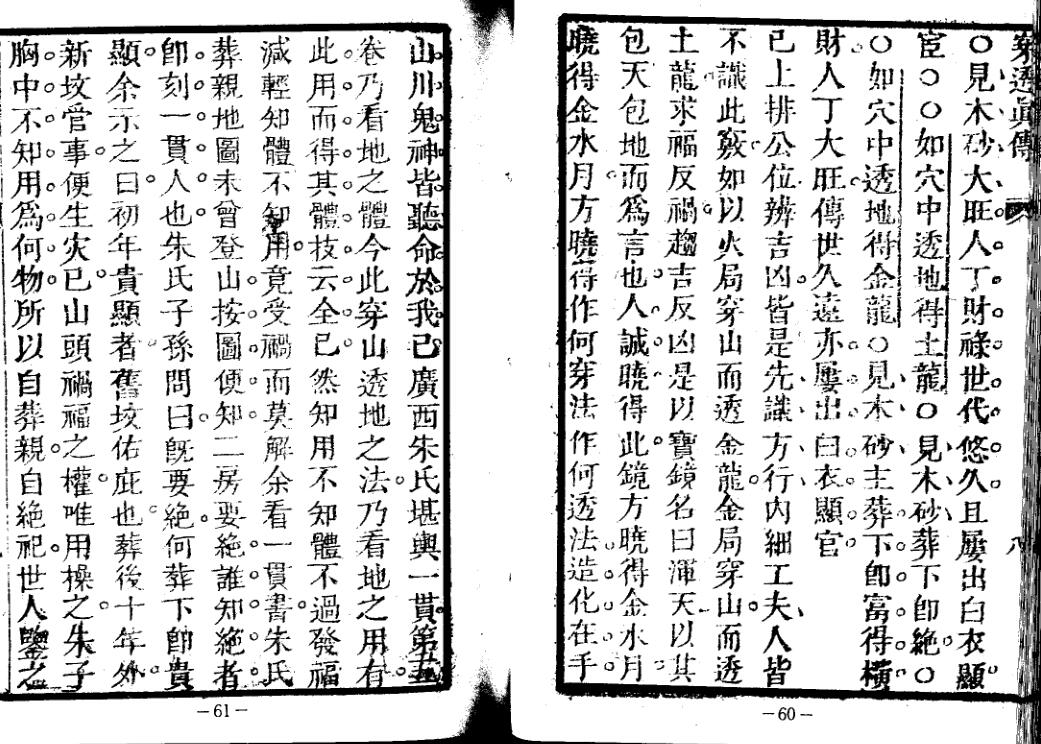 穿透眞傳
八
○見木砂大旺人丁財祿世代悠久且屢出白衣顯
宦○○如穴中透地得土龍○見木砂葬下卽絕○
○如穴中透地得金龍○見木砂主葬下卽富得橫
財人丁大旺傳世久遠亦屢出白衣顯官
已上排公位辨吉凶皆是先識方行內細工夫人皆
不識此竅如以火局穿山而透金龍金局穿山而透
土龍求福反禍趨吉反凶是以寶鏡名曰渾天以其
包天包地而爲言也人誠曉得此鏡方曉得金水月
曉得金水月方曉得作何穿法作何透法造化在手
山川鬼神皆聽命於我已廣西朱氏堪輿一貫第五
卷乃看地之體今此穿山透地之法乃看地之用有
此用而得其體技云全已然知用不知體不過發福
減輕知體不知用竟受禍而莫解余看一貫書朱氏
葬親地圖未曾登山按圖便知二房要絕誰知絕者
卽刻一貫人也朱氏子孫問曰旣要絕何葬下卽貴
顯余示之曰初年貴顯者舊坟佑庇也葬後十年外
新坟管事便生灾已山頭禍福之權唯用操之朱子
胸中不知用爲何物所以自葬親自絕祀世人鑒之
－61－
－60－